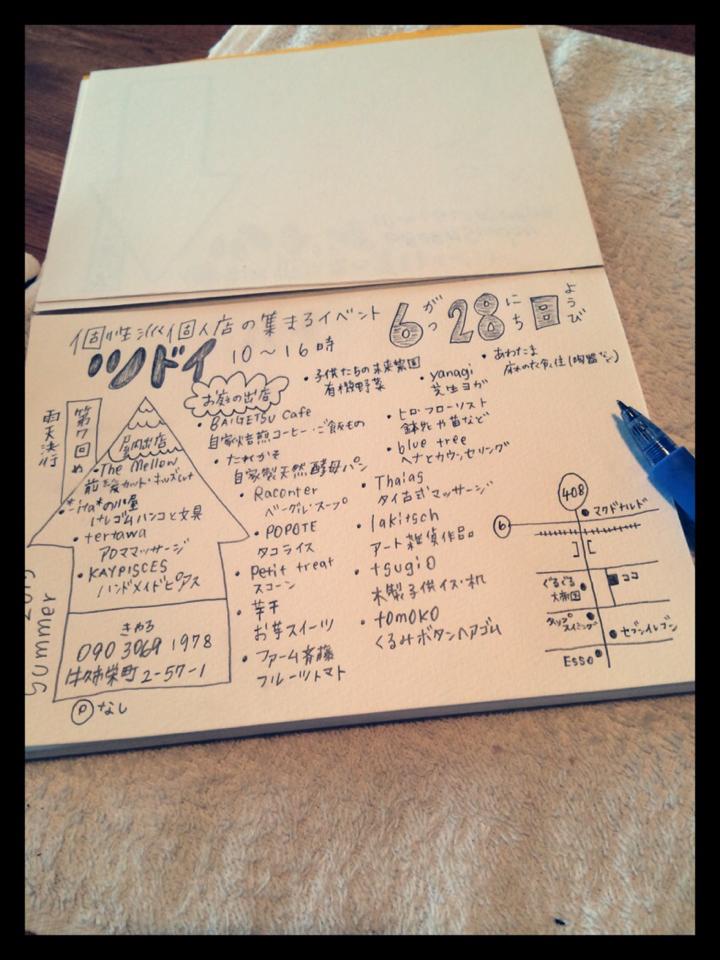 個性派個人店の集まるイベント
ツドイ 10〜16時
6がつ28にち日ようび
第7回め
雨天決行
屋内出店
・The Mellow
前髪カット・キッズカット
の小屋
けしゴムハンコと文具
・tertawa
アロママッサージ
・KAYPISCES
ハンドメイドピアス
きゃろ
090 3069 1978
牛久市栄町2-57-1
Pなし
summer
お庭の出店
・BAIGETSU Cafe
自家焙煎コーヒー・ご飯もの
・たねかそ
自家製天然酵母パン
・Raconter
ベーグル・スープ
・POPOTE
タコライス
・Petit treat
スコーン
・芋干
お芋スイーツ
・ファーム斉藤
フルーツトマト
・子供たちの未来菜園
有機野菜
・yanagi
芝生ヨガ
・ヒロ・フローリスト
鉢花や苗など
・blue tree
ヘナとカウンセリング
・Thaias
タイ古式マッサージ
・lakitsch
アート雑貨作品。
・tsugiO
木製子供イス・机
・tomoko
くるみボタンヘアゴム
・あわたま
麻の衣食住
408
マクドナルド
6
ココ
ぐるぐる
大帝国
タップ
スイミング
セブンイレブン
Esso